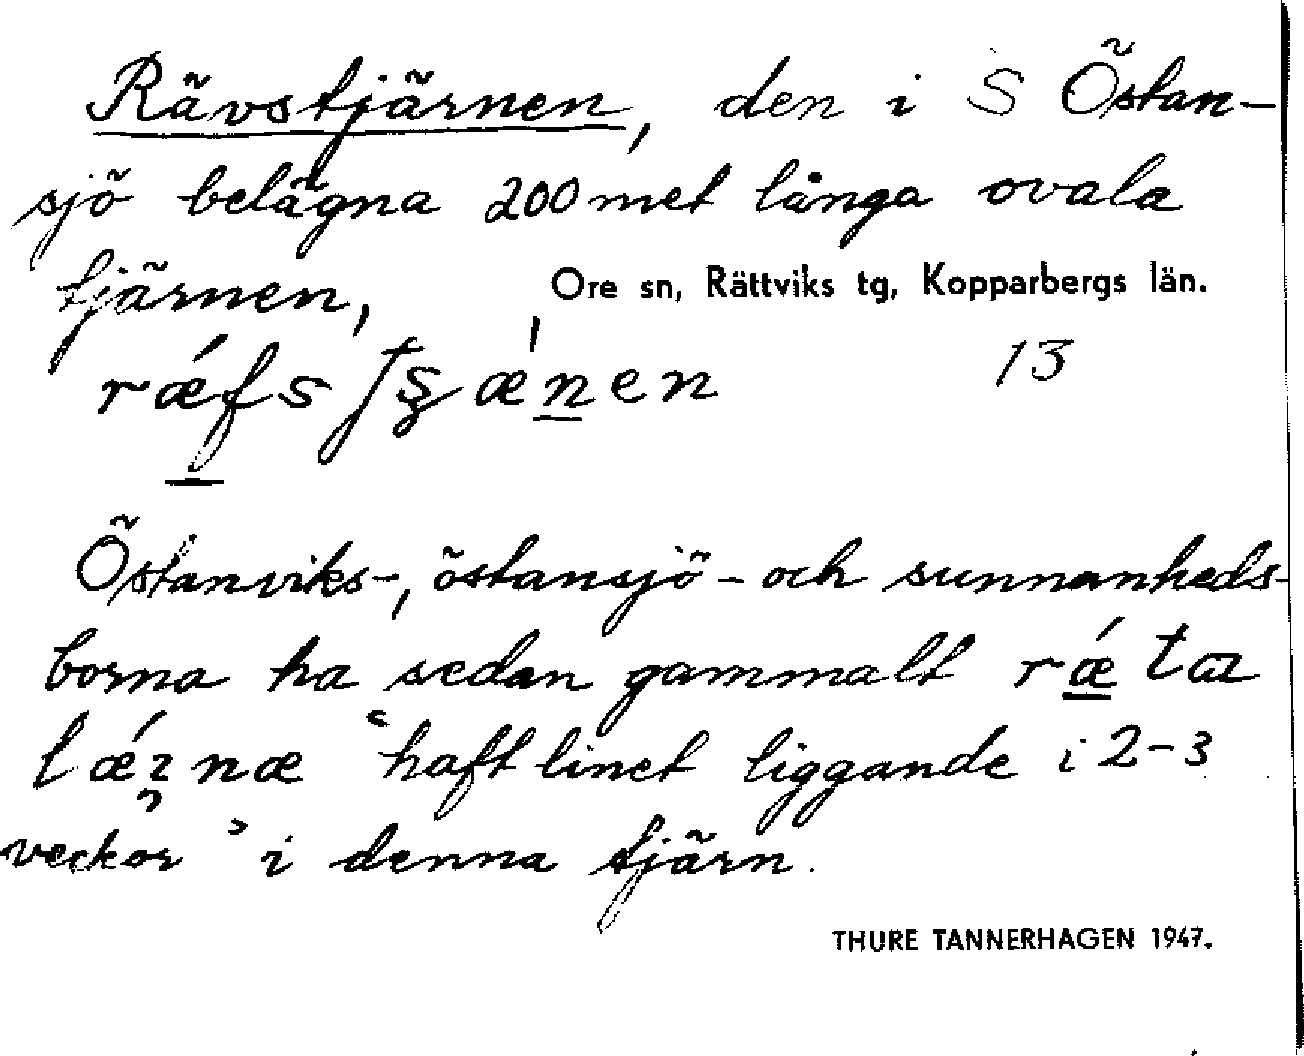 Rävstjärnen, den i S Östan-
sjö belägna 200 met långa ovala
tjärnen,
Ore sn, Rättviks tg, Kopparbergs län.
13
Östanviks-, östansjö- och sunnanheds-
borna ha sedan gammalt
‘haft linet liggande i 2-3
veckor’ i denna tjärn.
THURE TANNERHAGEN 1947.